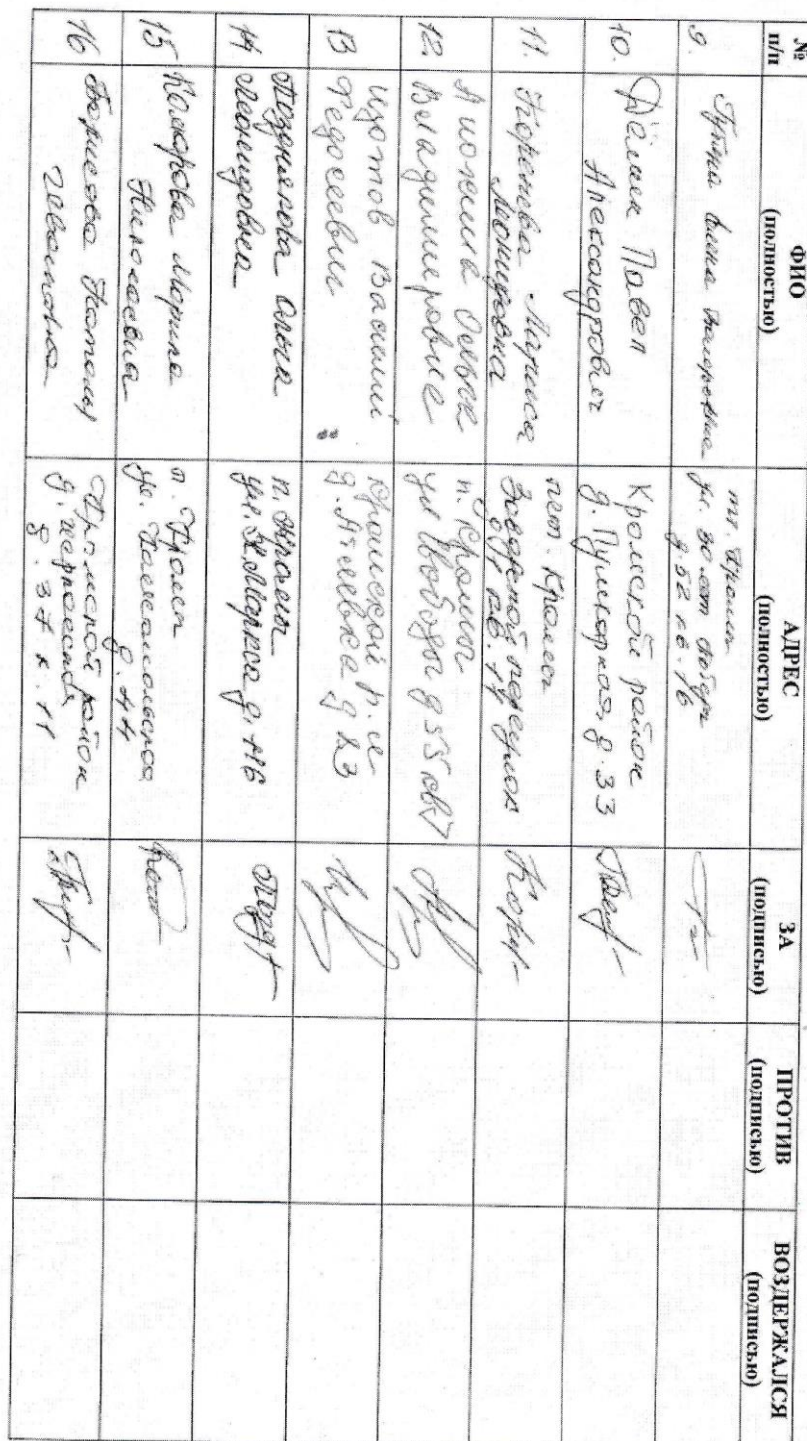 № п/п
ФИО (полностью)
АДРЕС (полностью)
ЗА (подписью)
ПРОТИВ (подписью)
ВОЗДЕРЖАЛСЯ (подписью)
9.
Елена Валерьевна
ул. 30 лет Победы
д. 52 кв. 16
10.
Дёмин Павел
Александрович
Кромской район
д. Пушкарная д. 33
11.
Лариса
Леонидовна
пгт Кромы
Заводской переулок
кв. 14
12.
Ольга
Владимировна
п. Кромы
ул Свободы д 35 кв 7
13
Изотов Василий
Федосеевич
Кромской р-н
д 23
14
Позднякова Ольга
Леонидовна
п. Кромы
ул. К. Маркса д.
15
Комарова Марина
Николаевна
п. Кромы
ул. Комсомольская
д. 44
16
Борисова Наталья
Ивановна
Кромской район
д. 37 к. 11